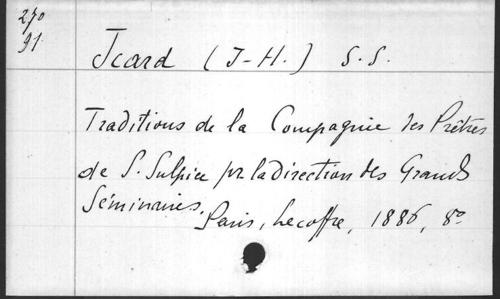 270
91
Icard (J-H.) S.S.
Traditions de la Compagnie des Prêtres
de S. Sulpice pr la direction des Grands
Séminaires. Paris, Lecoffre, 1886, 8º